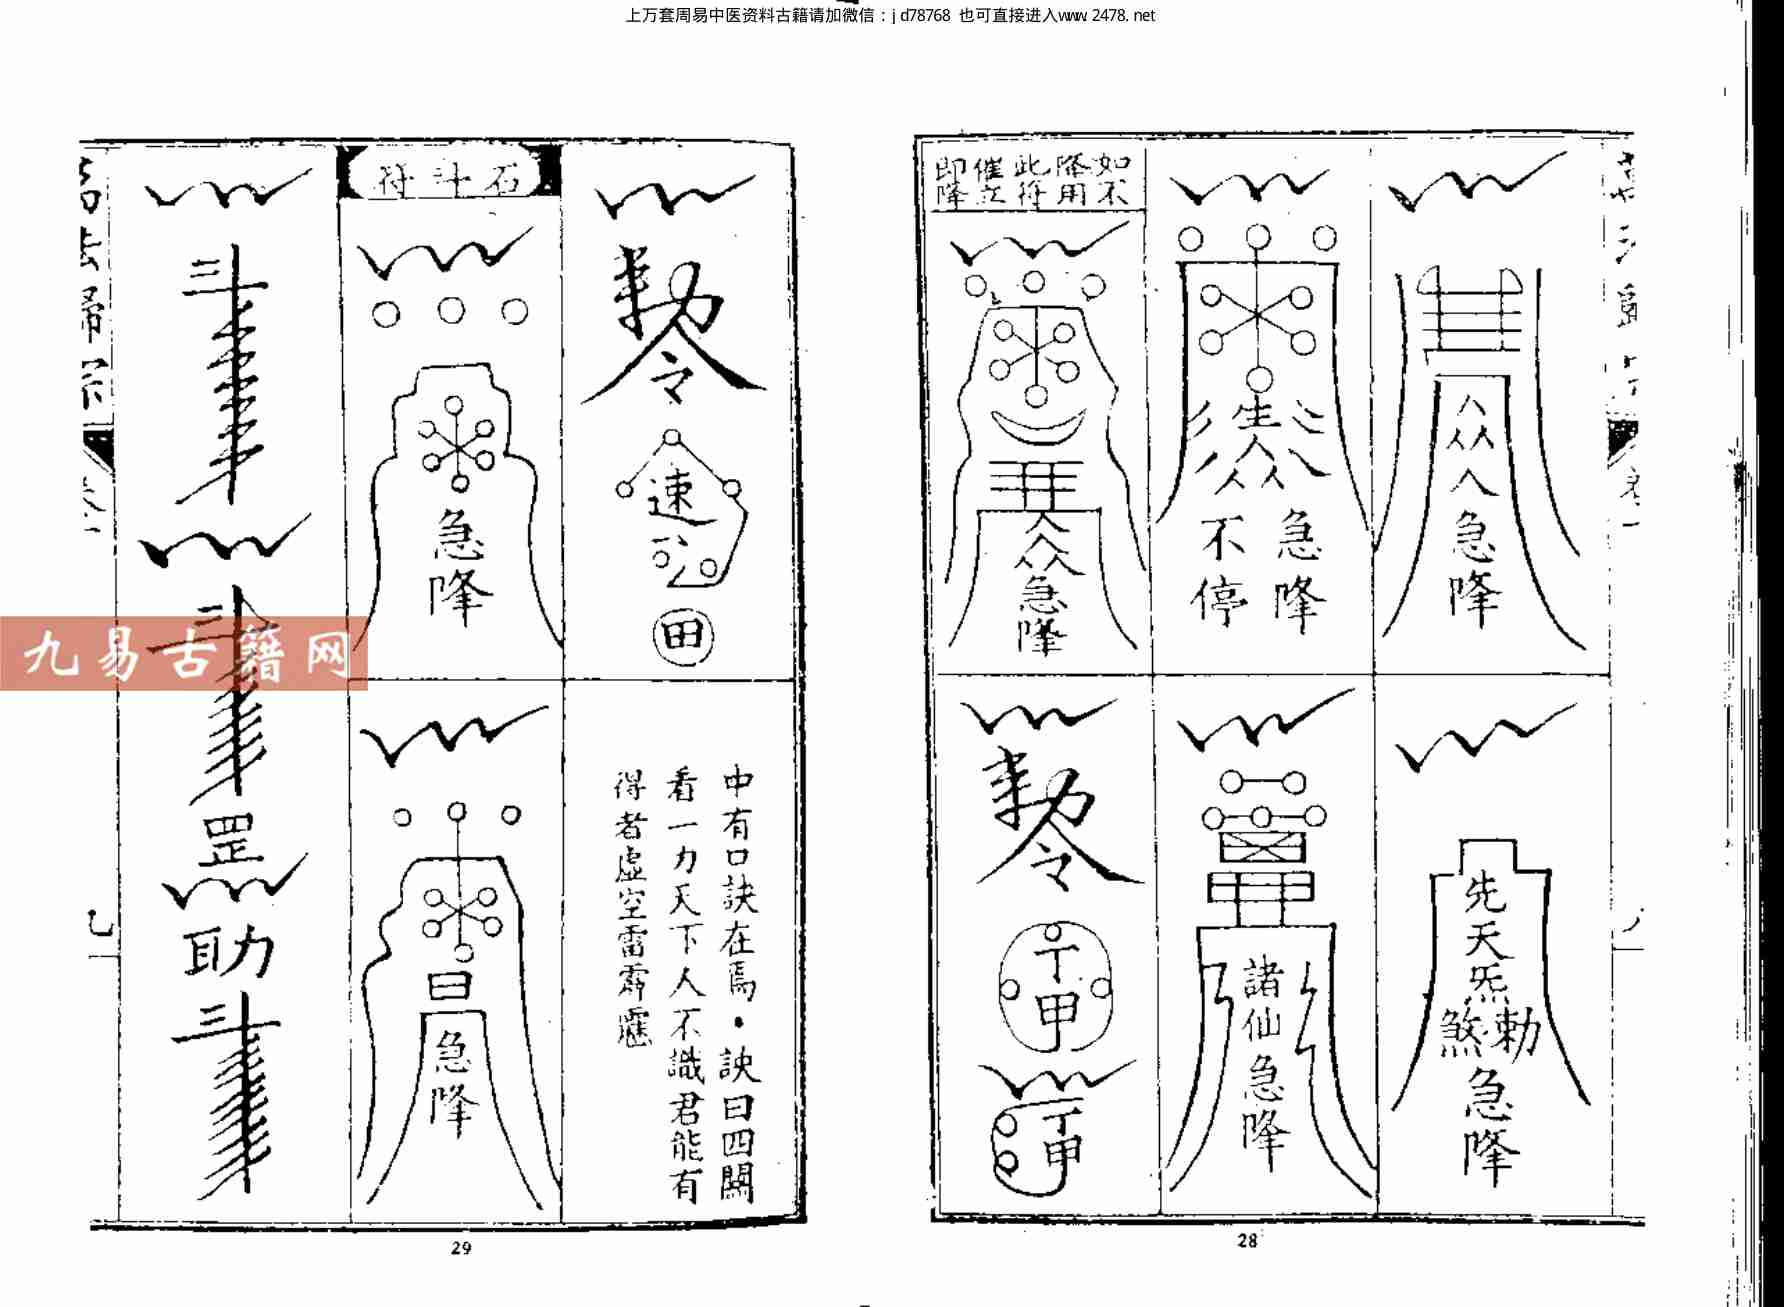 上万套周易中医资料古籍请加微信：jd78768 也可直接进入www.2478.net
急降
先天炁
煞勅
急降
急降
不停
諸仙急降
如不
降用
此符
催立
即降
急降
勅令
甲
甲
28
勅令
速
田
中有口訣在焉·訣曰四關
看一力天下人不識君能有
得者虛空雷霹靂
石斗符
急降
日
急降
斗
斗
罡
助
斗
萬法歸宗
卷一
29
九易古籍网